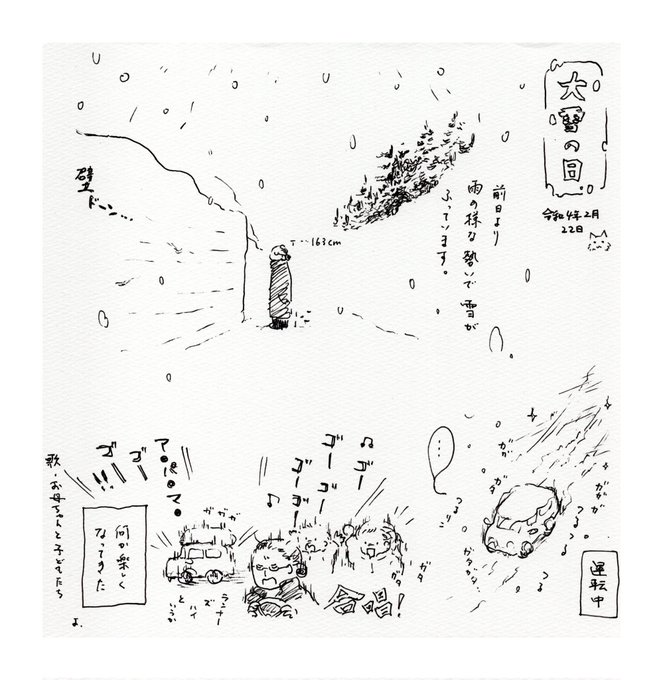 大雪の図
令和4年2月
22日
前日より
雨の様な勢いで雪が
ふっています。
163cm
壁
ドーン...
運転中
ガガガ
ガタ
つるっ
つるつる
つる
ガタガタ
...
♪ゴー
ゴーゴー
ゴーゴー
♪
合唱!
ガタ
ガタ
ランナー
ズ
ハイ
と
いうか
ガガガ
ア○パ○マ○
ゴーゴー!!
何か楽しく
なってきた
歌・お母ちゃんと子どもたち
よ.